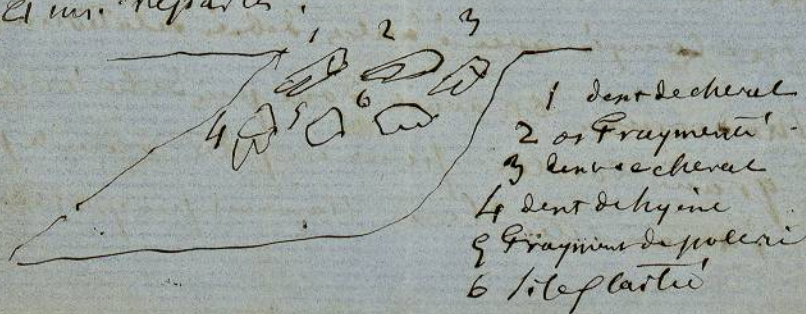 et mr. Reparlé.
1 2 3
4 5 6
1 dent de cheval
2 os Fragmenté
3 dent de cheval
4 dent de hyène
5 Fragment de poterie
6 silex